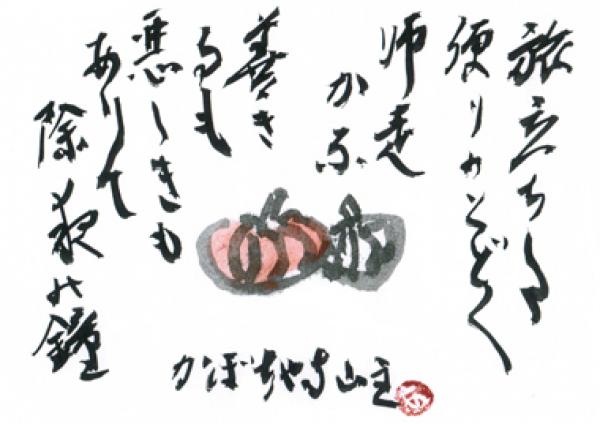 旅立ちの
便りのとどく
師走
かな
善き
も
悪しきも
ありて
除夜の鐘
かぼちゃ寺山主